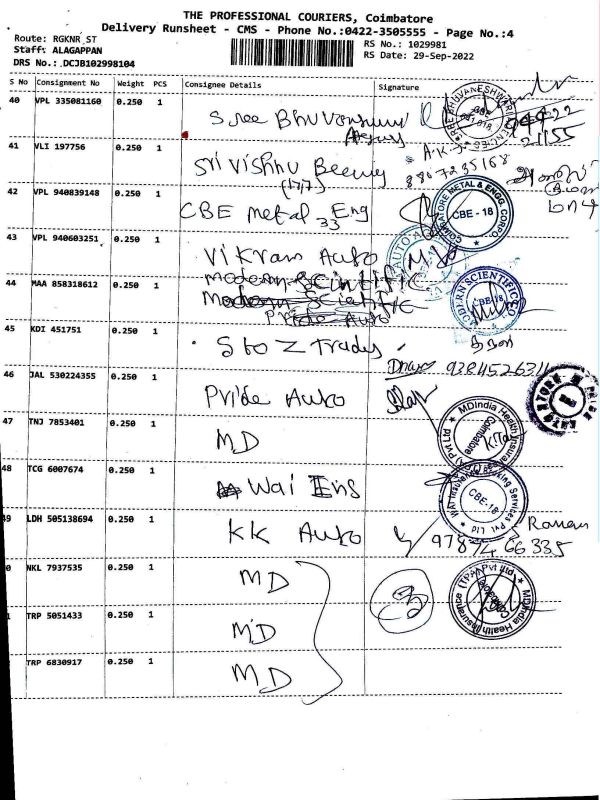 THE PROFESSIONAL COURIERS, Coimbatore
Delivery Runsheet - CMS - Phone No.:0422-3505555 - Page No.:4
Route: RGKNR_ST
RS No.: 1029981
Staff: ALAGAPPAN
RS Date: 29-Sep-2022
DRS No.: DCJB102998104
S No Consignment No Weight PCS Consignee Details Signature
40 VPL 335081160 0.250 1 Sree Bhuvaneshwari
41 VLI 197756 0.250 1 Sri Vishnu
8807235168
42 VPL 940839148 0.250 1 CBE metal Eng
33
COIMBATORE METAL & ENGG. CORPO
CBE - 18
43 VPL 940603251 0.250 1 Vikram Auto
modern Scientific
44 MAA 858318612 0.250 1 Modern Scientific
Pride Auto
MODERN SCIENTIFIC CO
CBE-18
45 KDI 451751 0.250 1 S to Z Trades
9384526311
46 JAL 530224355 0.250 1 Pride Auto
47 TNJ 7853401 0.250 1 MD
MDIndia Health Insurance (TPA) Pvt Ltd
Coimbatore
48 TCG 6007674 0.250 1 Wai Ens
CBE-18
49 LDH 505138694 0.250 1 KK Auto
Raman
97874 66335
0 NKL 7937535 0.250 1 MD
MDIndia Health Insurance (TPA) Pvt Ltd
1 TRP 5051433 0.250 1 MD
TRP 6830917 0.250 1 MD